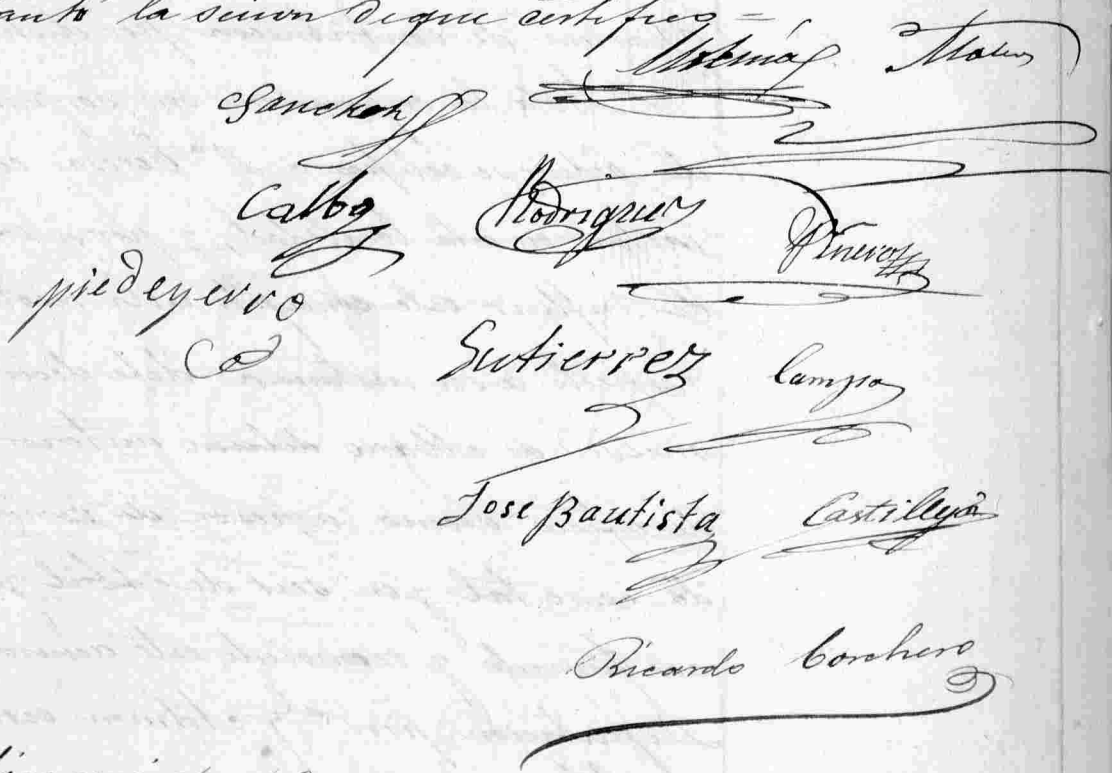 la sesion de que certifico =
Molina Mateos
Sanchez
Calbo Rodriguez Piñero
piedeyerro
Gutierrez Campo
Jose Bautista Castillejo
Ricardo Corchero